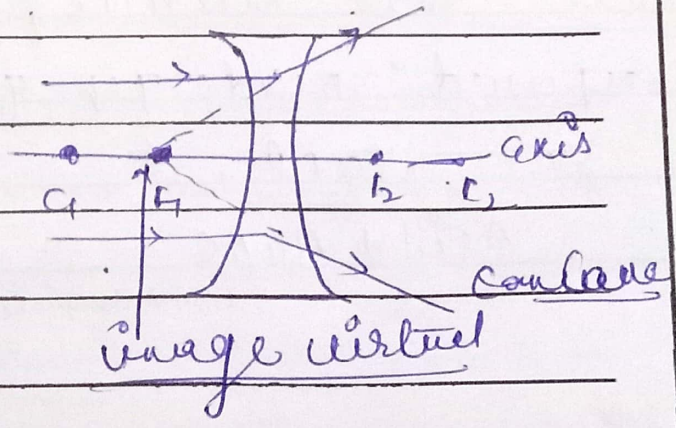 axis
C1 F1 F2 C2
concave
image virtual